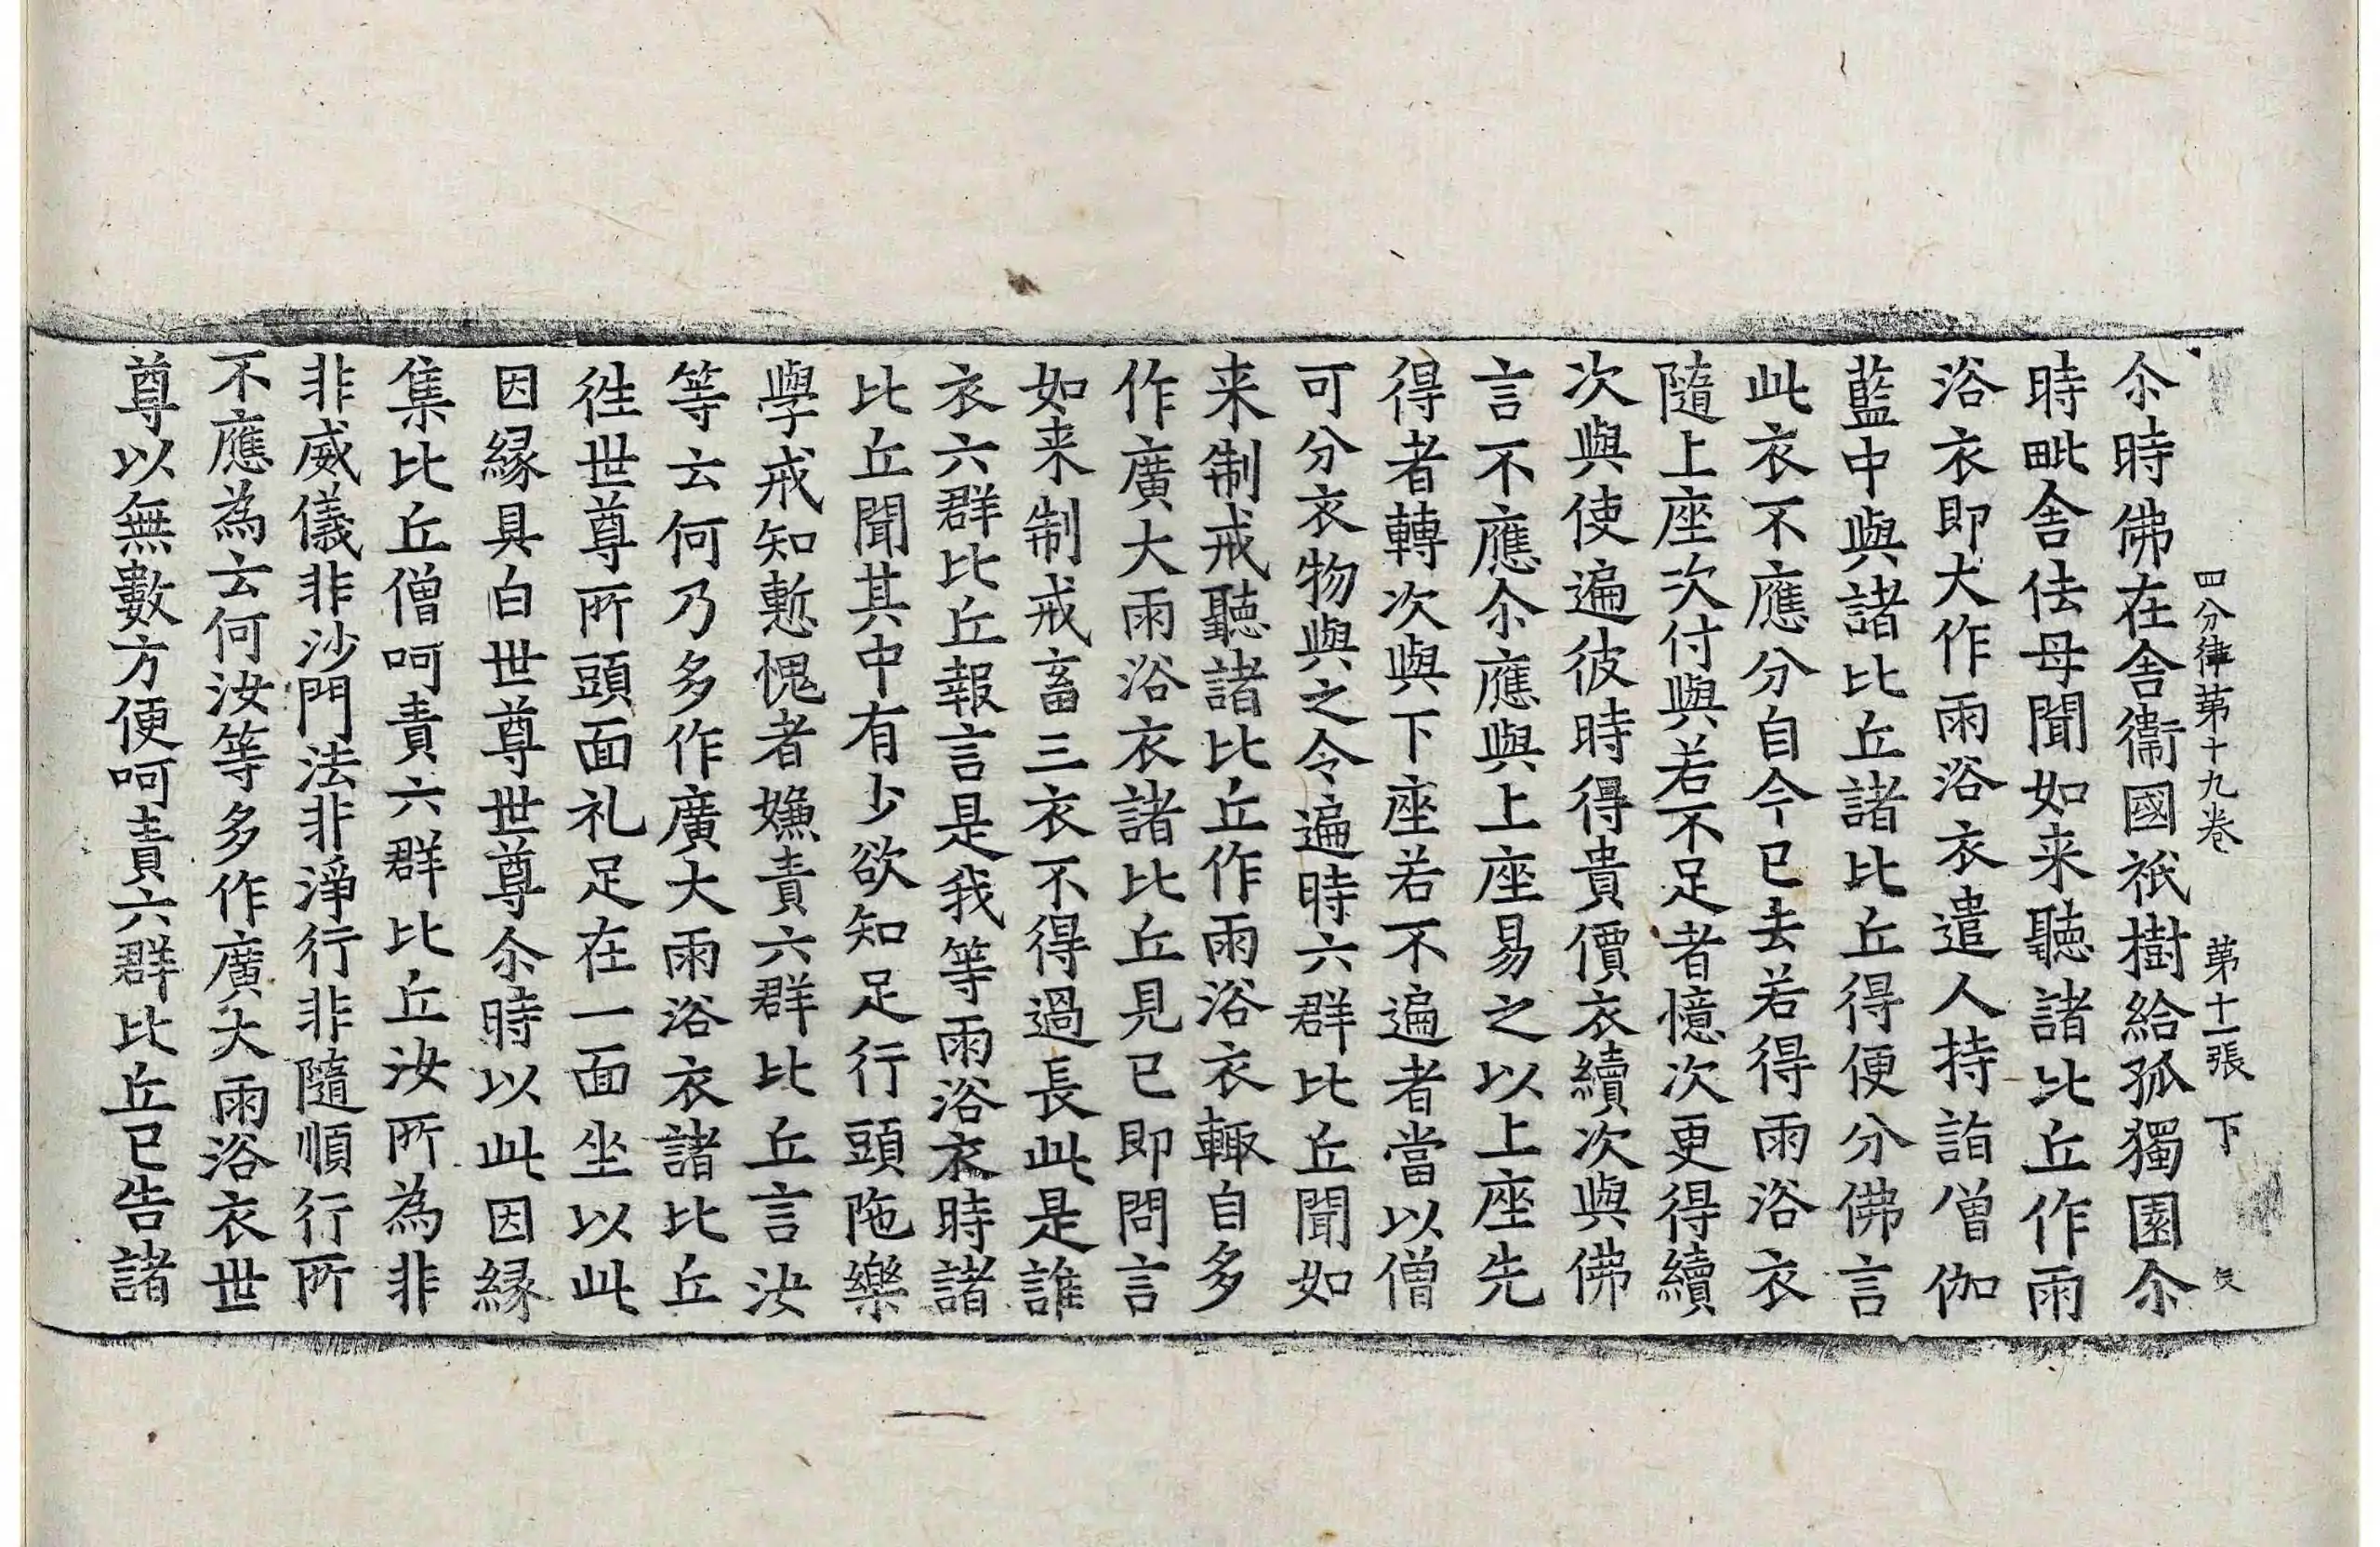 四分律第十九卷　第十一張　下
尒時佛在舎衞國祇樹給孤獨園尒
時毗舎佉母聞如来聽諸比丘作雨
浴衣即大作雨浴衣遣人持詣僧伽
藍中與諸比丘諸比丘得便分佛言
此衣不應分自今已去若得雨浴衣
隨上座次付與若不足者憶次更得續
次與使遍彼時得貴價衣續次與佛
言不應尒應與上座易之以上座先
得者轉次與下座若不遍者當以僧
可分衣物與之令遍時六群比丘聞如
来制戒聽諸比丘作雨浴衣輙自多
作廣大雨浴衣諸比丘見已即問言
如来制戒畜三衣不得過長此是誰
衣六群比丘報言是我等雨浴衣時諸
比丘聞其中有少欲知足行頭陁樂
學戒知慙愧者嫌責六群比丘言汝
等云何乃多作廣大雨浴衣諸比丘
徃世尊所頭面礼足在一面坐以此
因縁具白世尊世尊尒時以此因縁
集比丘僧呵責六群比丘汝所為非
非威儀非沙門法非淨行非隨順行所
不應為云何汝等多作廣大雨浴衣世
尊以無數方便呵責六群比丘已告諸